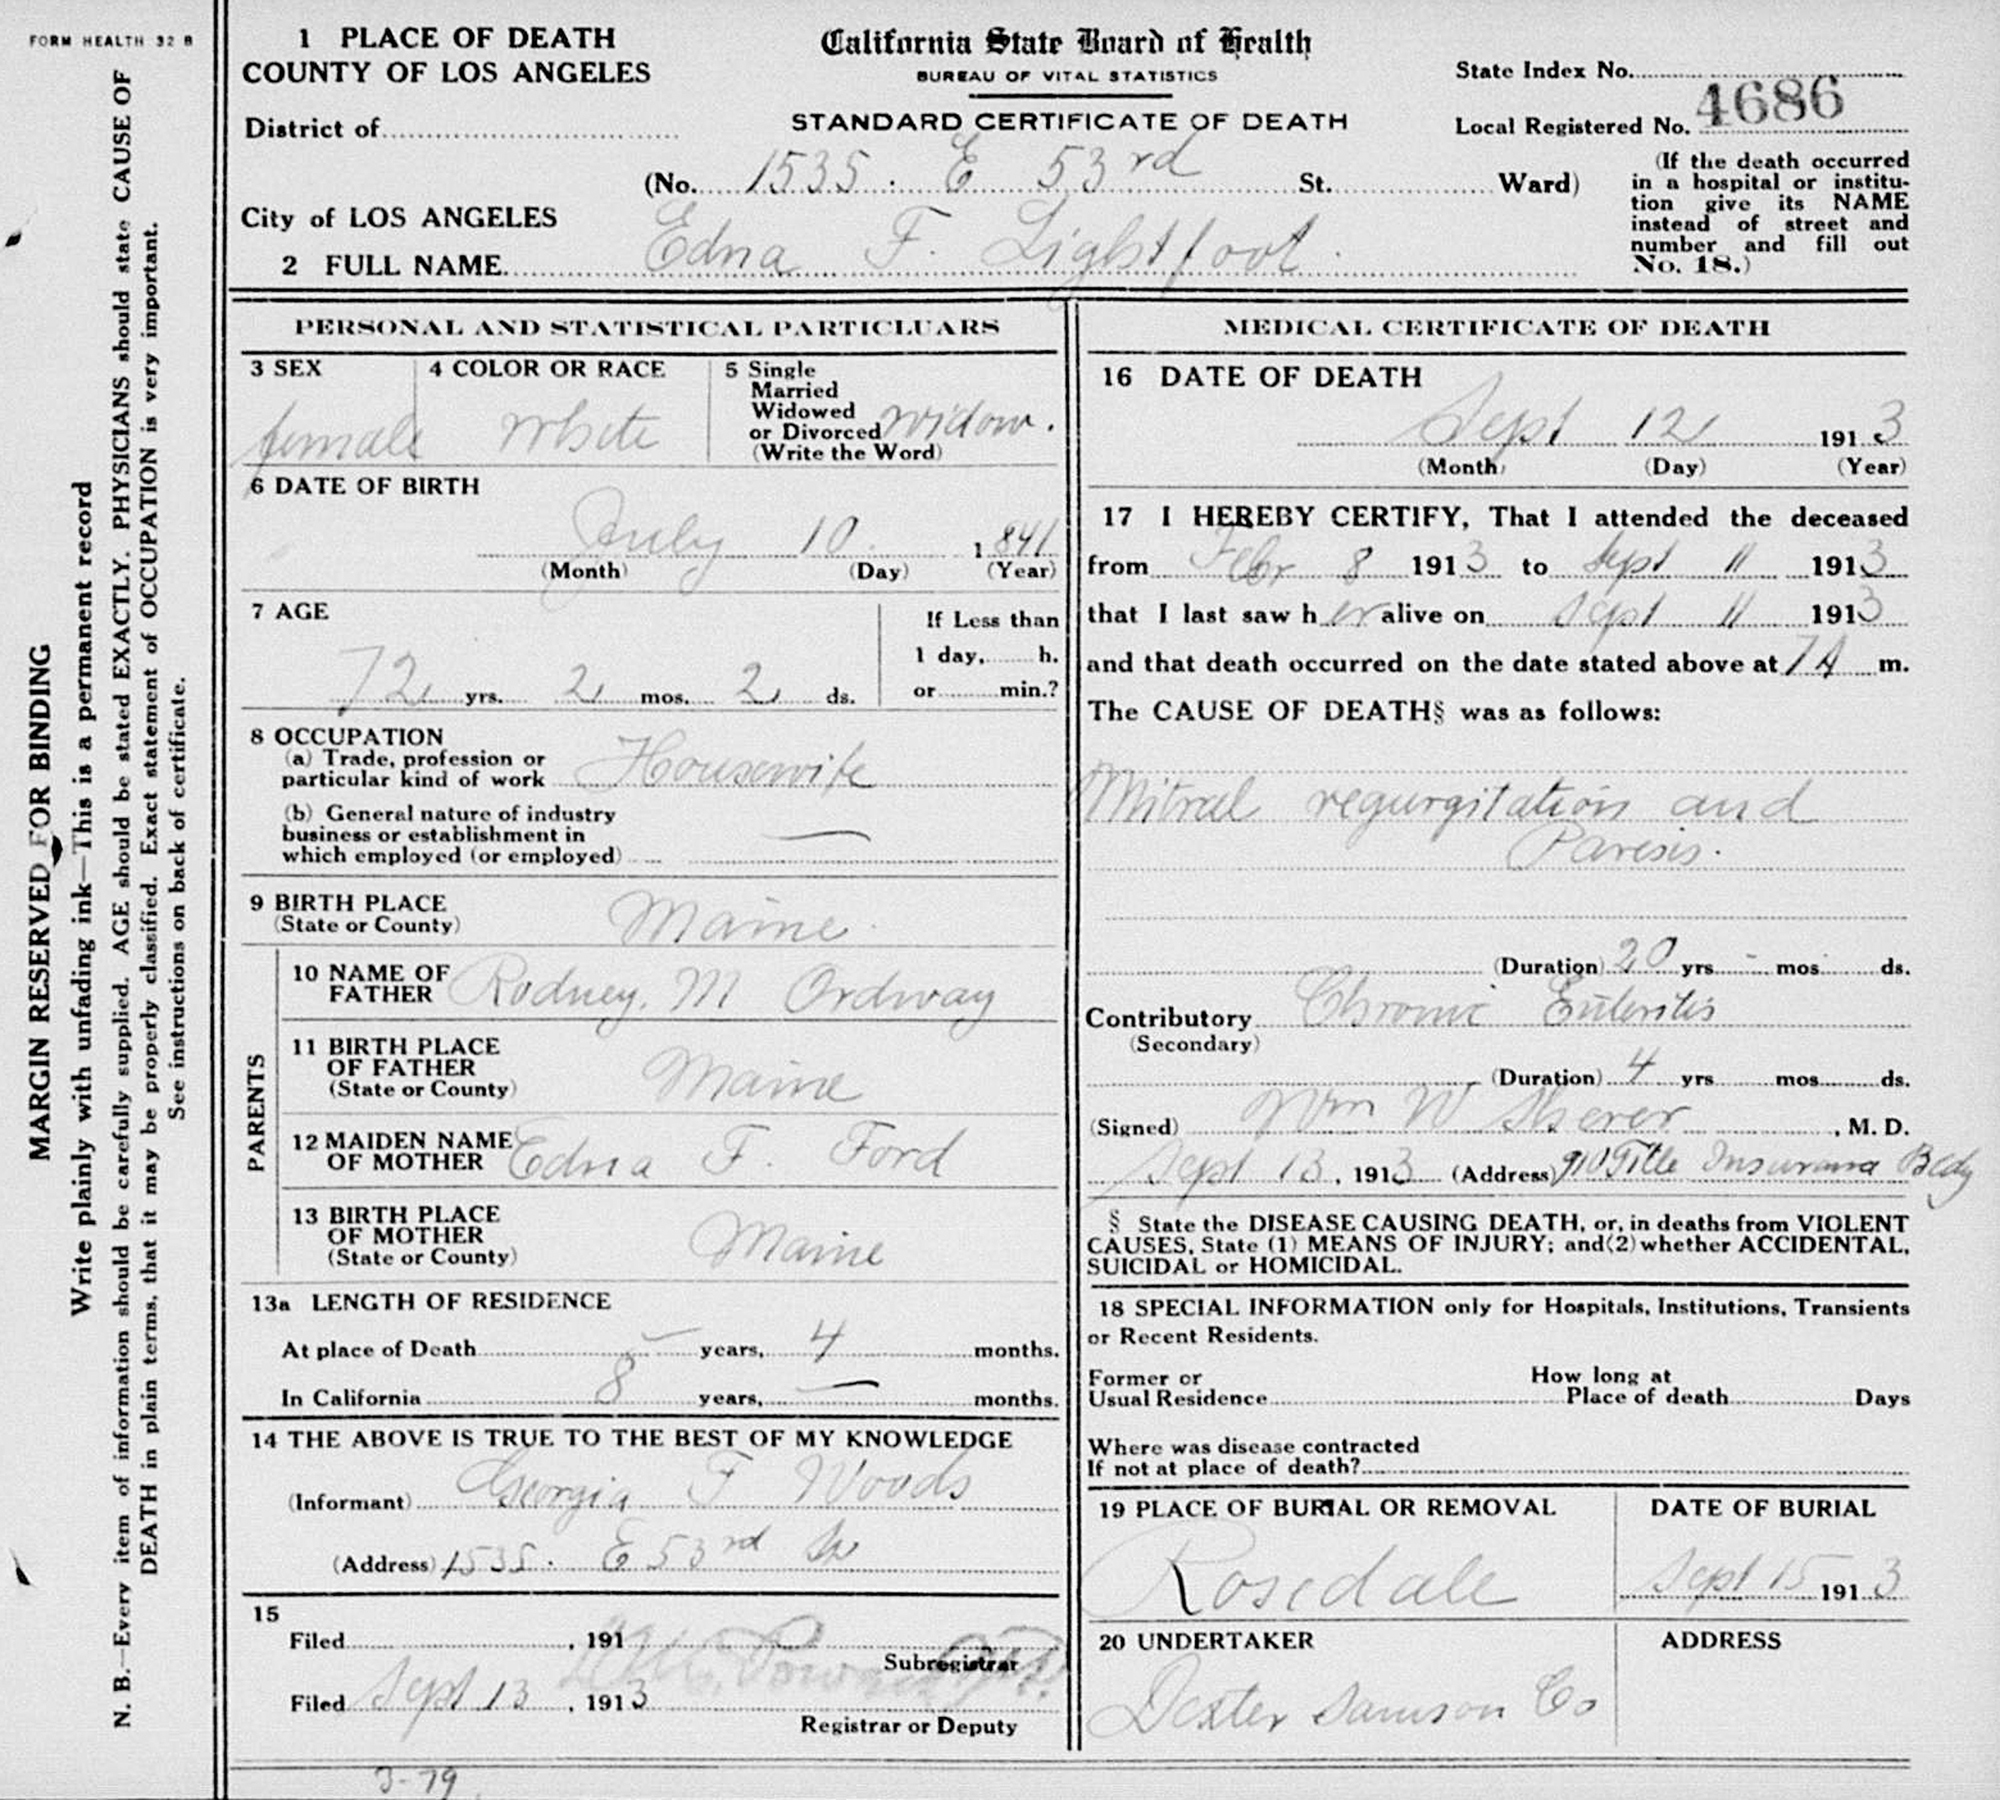 FORM HEALTH 32 B
MARGIN RESERVED FOR BINDING
Write plainly with unfading ink—This is a permanent record
N. B.—Every item of information should be carefully supplied. AGE should be stated EXACTLY. PHYSICIANS should state CAUSE OF
DEATH in plain terms, that it may be properly classified. Exact statement of OCCUPATION is very important.
See instructions on back of certificate.
1 PLACE OF DEATH
COUNTY OF LOS ANGELES
District of
California State Board of Health
BUREAU OF VITAL STATISTICS
STANDARD CERTIFICATE OF DEATH
State Index No.
Local Registered No. 4686
(No. 1535. E 53rd St. Ward)
(If the death occurred
in a hospital or institu-
tion give its NAME
instead of street and
number and fill out
No. 18.)
City of LOS ANGELES
2 FULL NAME Edna F. Lightfoot.
PERSONAL AND STATISTICAL PARTICLUARS
3 SEX
female
4 COLOR OR RACE
White
5 Single
Married
Widowed
or Divorced
(Write the Word)
Widow.
6 DATE OF BIRTH
July 10. 1841
(Month) (Day) (Year)
7 AGE
72 yrs. 2 mos. 2 ds.
If Less than
1 day, h.
or min.?
8 OCCUPATION
(a) Trade, profession or
particular kind of work Housewife
(b) General nature of industry
business or establishment in
which employed (or employed) —
9 BIRTH PLACE
(State or County) Maine.
PARENTS
10 NAME OF
FATHER Rodney. M Ordway
11 BIRTH PLACE
OF FATHER
(State or County) Maine
12 MAIDEN NAME
OF MOTHER Edna F. Ford
13 BIRTH PLACE
OF MOTHER
(State or County) Maine
13a LENGTH OF RESIDENCE
At place of Death — years, 4 months.
In California 8 years, — months.
14 THE ABOVE IS TRUE TO THE BEST OF MY KNOWLEDGE
(Informant) Georgia F Woods
(Address) 1535. E 53rd St
15
Filed , 191
Subregistrar
Filed Sept 13, 1913
Registrar or Deputy
3-79.
MEDICAL CERTIFICATE OF DEATH
16 DATE OF DEATH
Sept 12 1913
(Month) (Day) (Year)
17 I HEREBY CERTIFY, That I attended the deceased
from Febr 8 1913 to Sept 11 1913
that I last saw her alive on Sept 11 1913
and that death occurred on the date stated above at 7 A m.
The CAUSE OF DEATH§ was as follows:
Mitral regurgitation and
Paresis.
(Duration) 20 yrs - mos ds.
Contributory Chronic Enteritis
(Secondary)
(Duration) 4 yrs mos ds.
(Signed) Wm W Sherer , M. D.
Sept 13, 1913 (Address) 910 Title Insurance Bldg
§ State the DISEASE CAUSING DEATH, or, in deaths from VIOLENT
CAUSES, State (1) MEANS OF INJURY; and (2) whether ACCIDENTAL,
SUICIDAL or HOMICIDAL.
18 SPECIAL INFORMATION only for Hospitals, Institutions, Transients
or Recent Residents.
Former or
Usual Residence
How long at
Place of death Days
Where was disease contracted
If not at place of death?
19 PLACE OF BURIAL OR REMOVAL
Rosedale
DATE OF BURIAL
Sept 15 1913
20 UNDERTAKER
Dexter Samson Co
ADDRESS